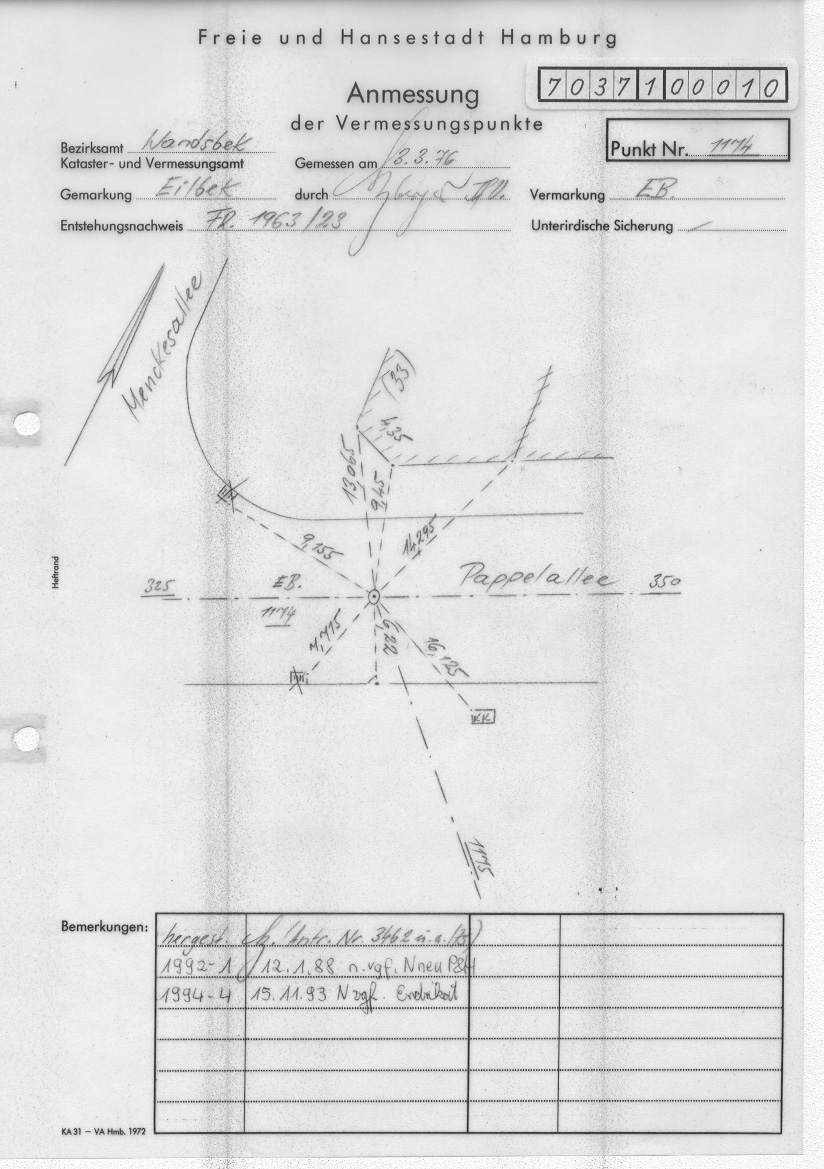 Freie und Hansestadt Hamburg
7037100010
Anmessung
der Vermessungspunkte
Bezirksamt Wandsbek
Kataster- und Vermessungsamt
Gemessen am 3.3.76
Punkt Nr. 1174
Gemarkung Eilbek
durch
Vermarkung EB.
Entstehungsnachweis FR. 1963/23
Unterirdische Sicherung –
Menckesallee
(33)
4,35
13,065
9,45
14,295
9,155
Heftrand
325
EB.
1174
Pappelallee
350
7,715
6,22
16,125
KK
1175
Bemerkungen:
hergest. Antr. Nr. 3462 u.a.
1992-1 12.1.88 n.vgf. Nneu
1994-4 15.11.93 N vgf.
KA 31 – VA Hmb. 1972